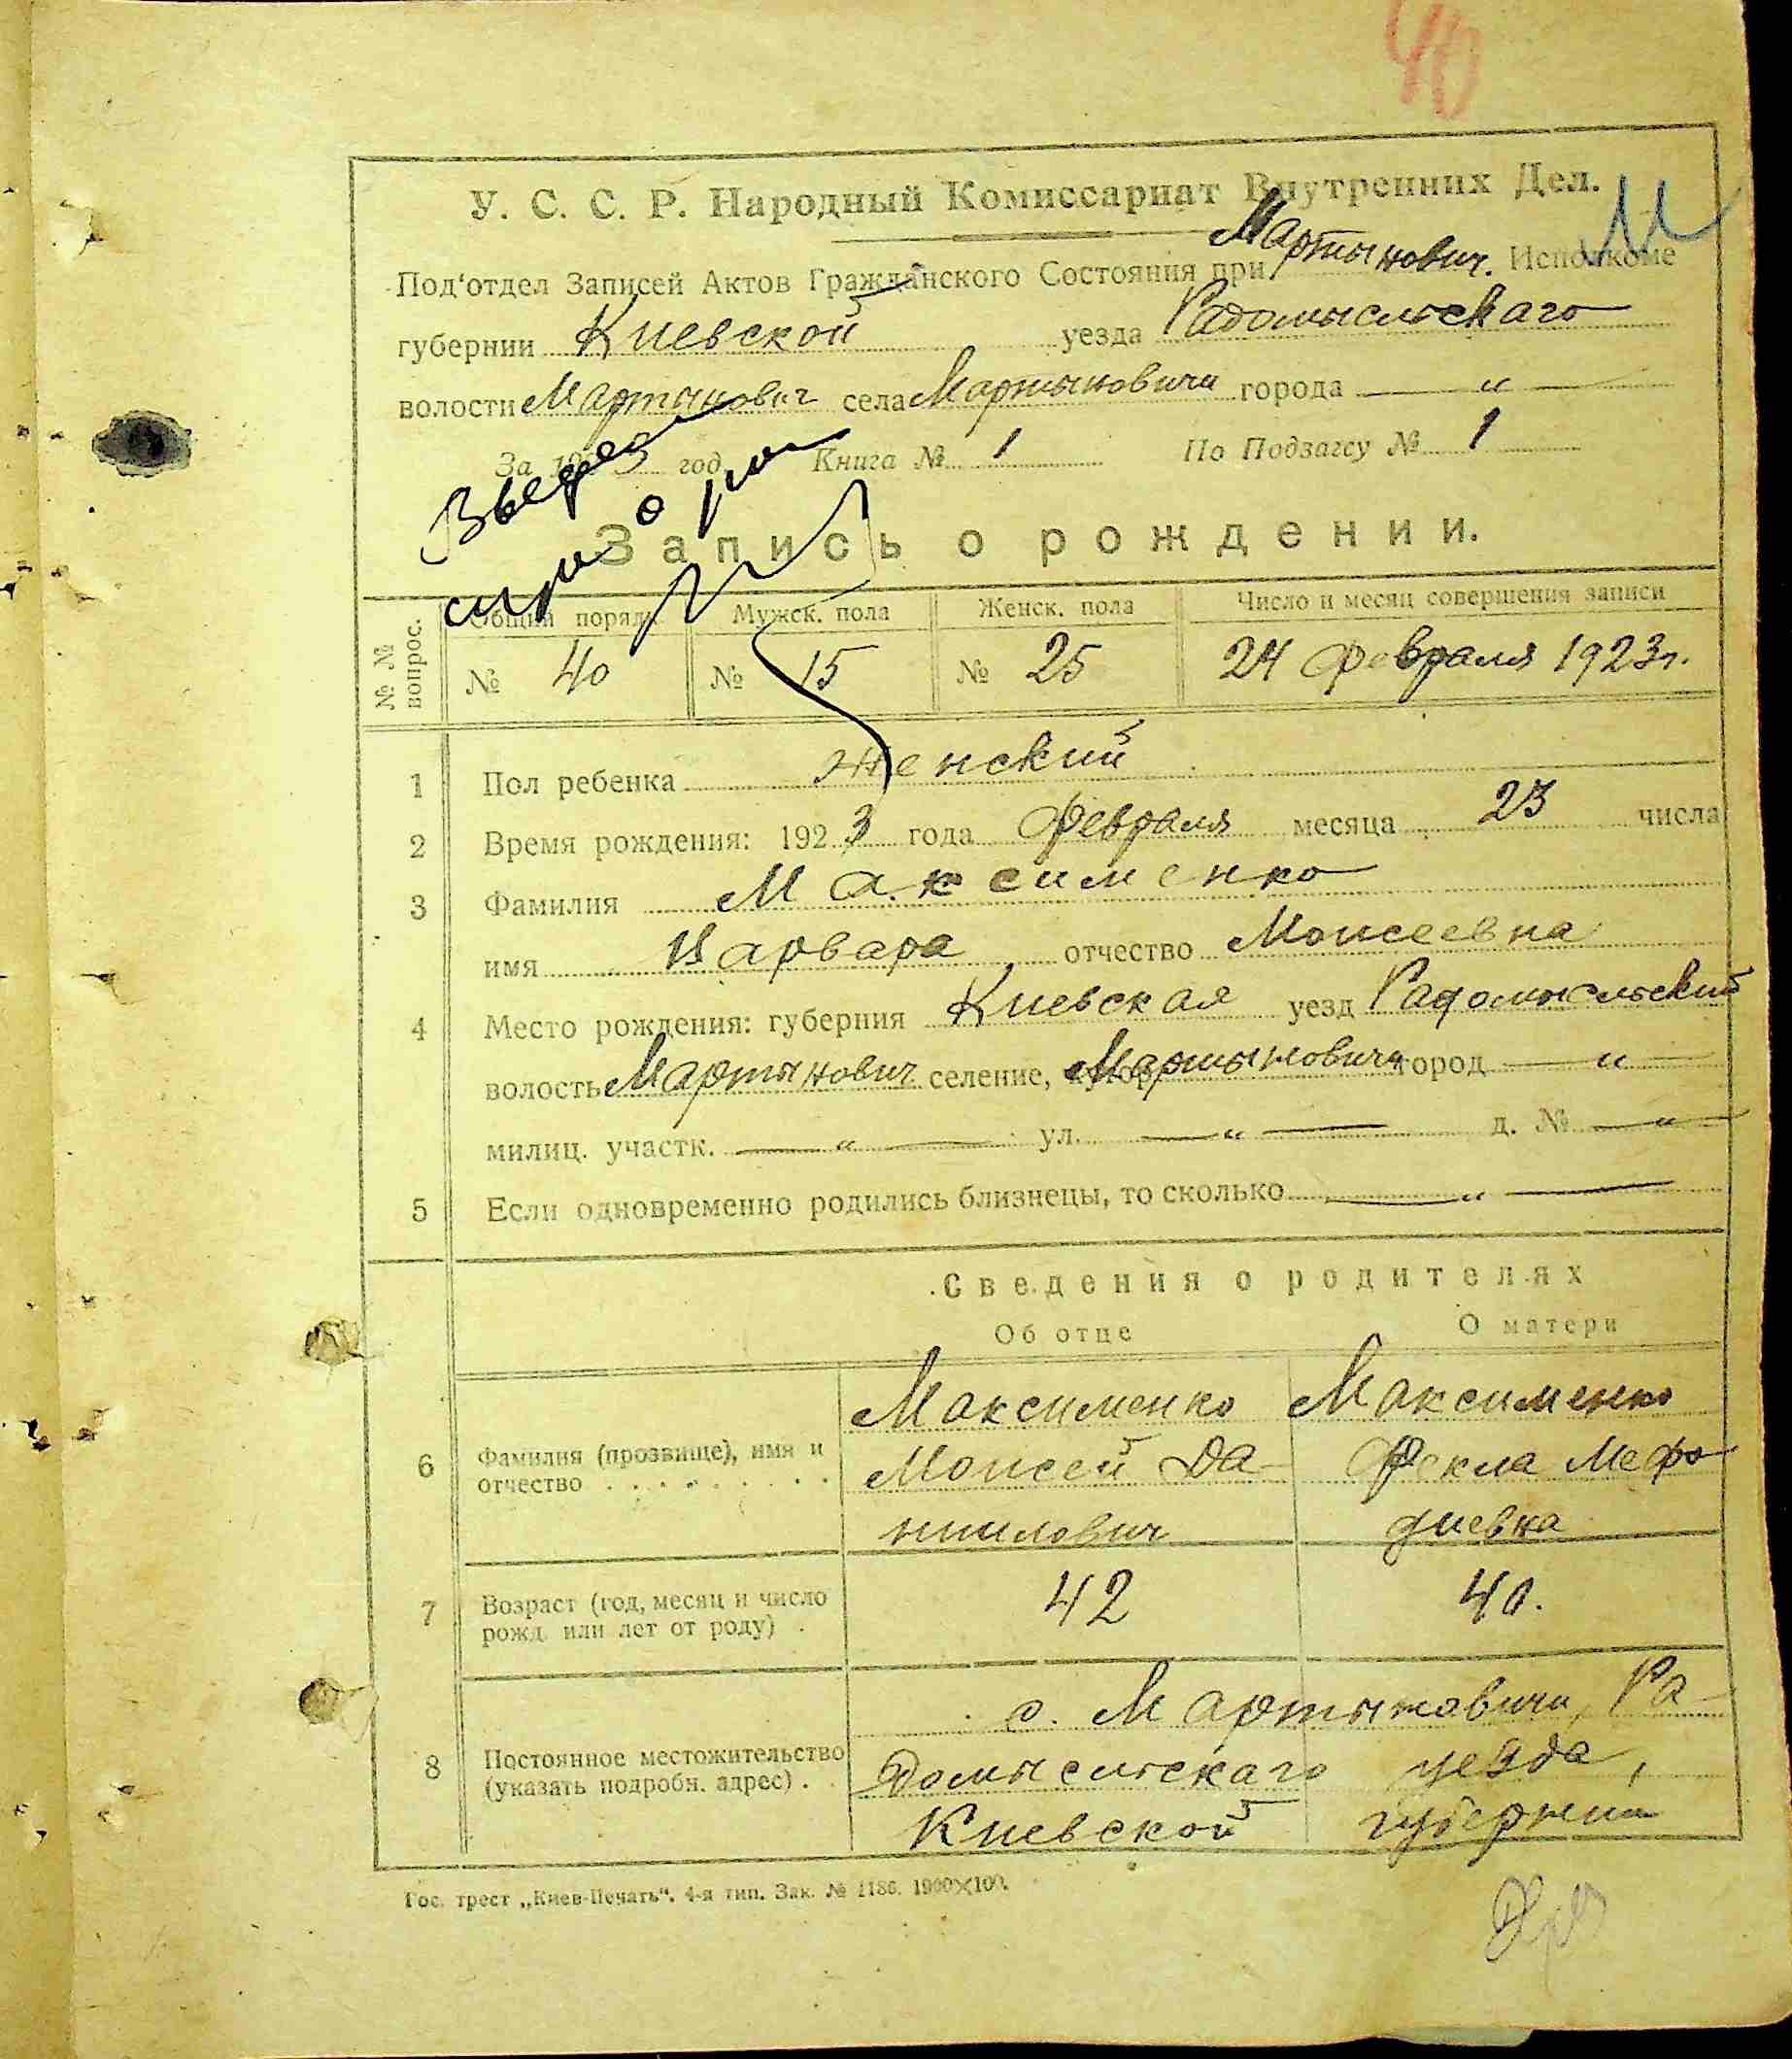 40
У. С. С. Р. Народный Комиссариат Внутренних Дел.
Под'отдел Записей Актов Гражданского Состояния при Мартынович. Исполкоме
губернии Киевской уезда Радомысльскаго
волости Мартынович села Мартыновичи города — " —
За 1923 год Книга № 1 По Подзагсу № 1
Запись о рождении.
№ № вопрос.
Общий поряд. Мужск. пола Женск. пола Число и месяц совершения записи
№ 40 № 15 № 25 24 февраля 1923 г.
1 Пол ребенка женский
2 Время рождения: 1923 года февраля месяца 23 числа
3 Фамилия Максименко
имя Варвара отчество Моисеевна
4 Место рождения: губерния Киевская уезд Радомысльский
волость Мартынович селение, хутор Мартыновичи город — " —
милиц. участк. — " — ул. — " — д. № — " —
5 Если одновременно родились близнецы, то сколько — " —
Сведения о родителях
Об отце О матери
6 Фамилия (прозвище), имя и отчество . . . . . . . .
Максименко Максименко
Моисей Да- Фекла Мефо-
ниилович диевна
7 Возраст (год, месяц и число рожд. или лет от роду) .
42 40.
8 Постоянное местожительство (указать подробн. адрес) .
с. Мартыновичи, Ра-
домысльскаго уезда,
Киевской губернии
Гос. трест „Киев-Печать“. 4-я тип. Зак. № 1186. 1900×100.